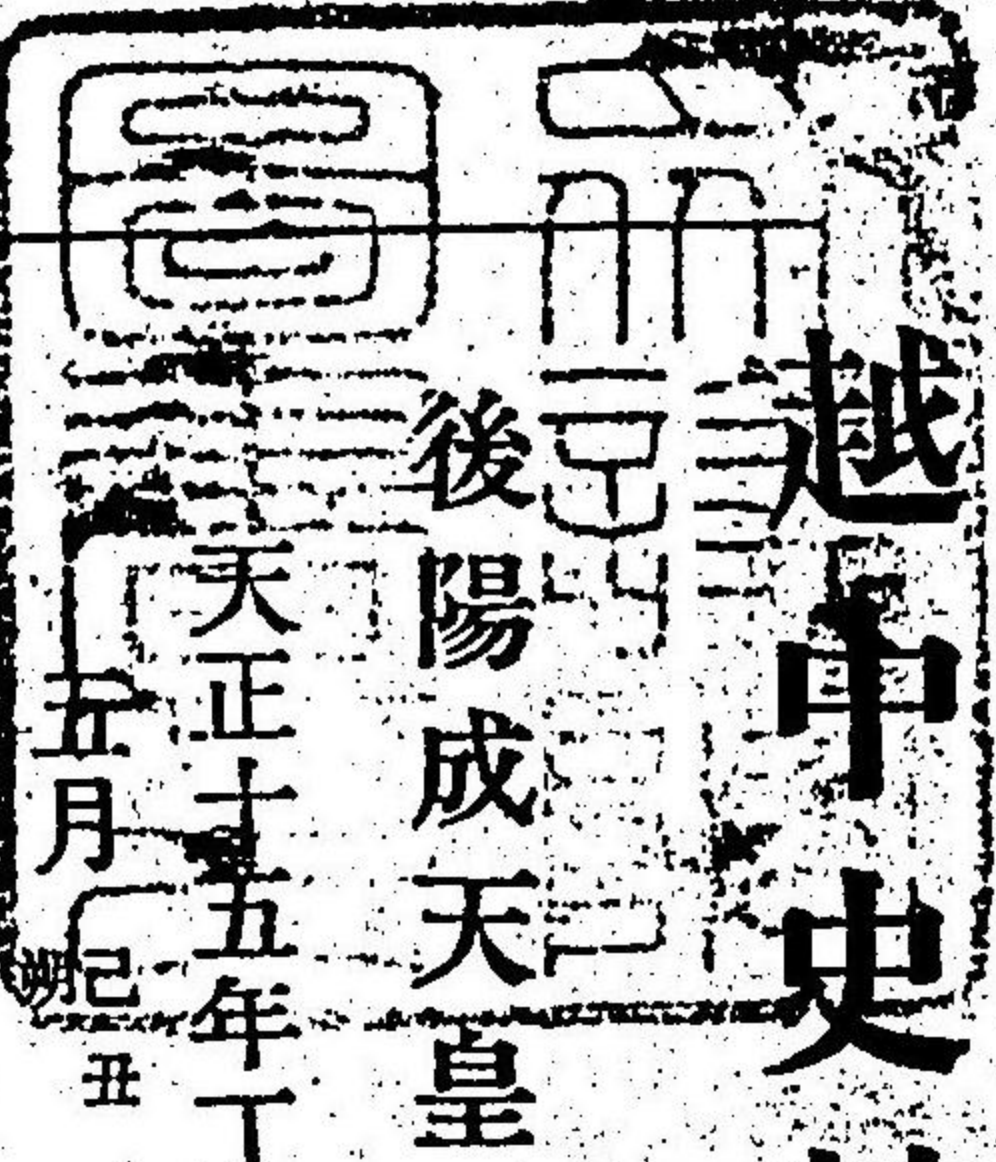 越中史
後陽成天皇
天正十五年
五月
己丑
朔